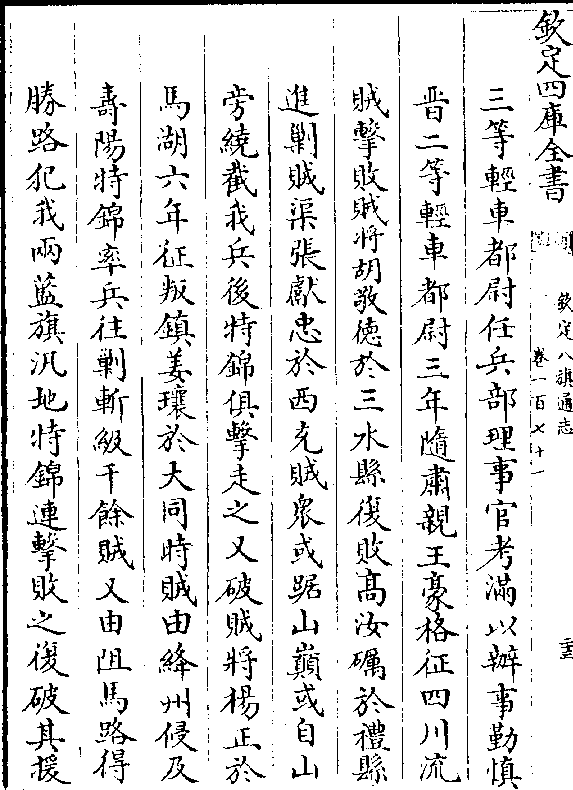 欽定四庫全書
欽定八旗通志
卷一百七十一
三等輕車都尉任兵部理事官考滿以辦事勤慎
晋二等輕車都尉三年隨肅親王豪格征四川流
賊擊敗賊將胡敬徳於三水縣復敗髙汝礪於禮縣
進剿賊渠張獻忠於西充賊衆或踞山巔或自山
旁繞截我兵後特錦俱擊走之又破賊將楊正於
馬湖六年征叛鎮姜瓖於大同時賊由絳州侵及
壽陽特錦率兵往剿斬級千餘賊又由阻馬路得
勝路犯我兩藍旗汛地特錦連擊敗之復破其援